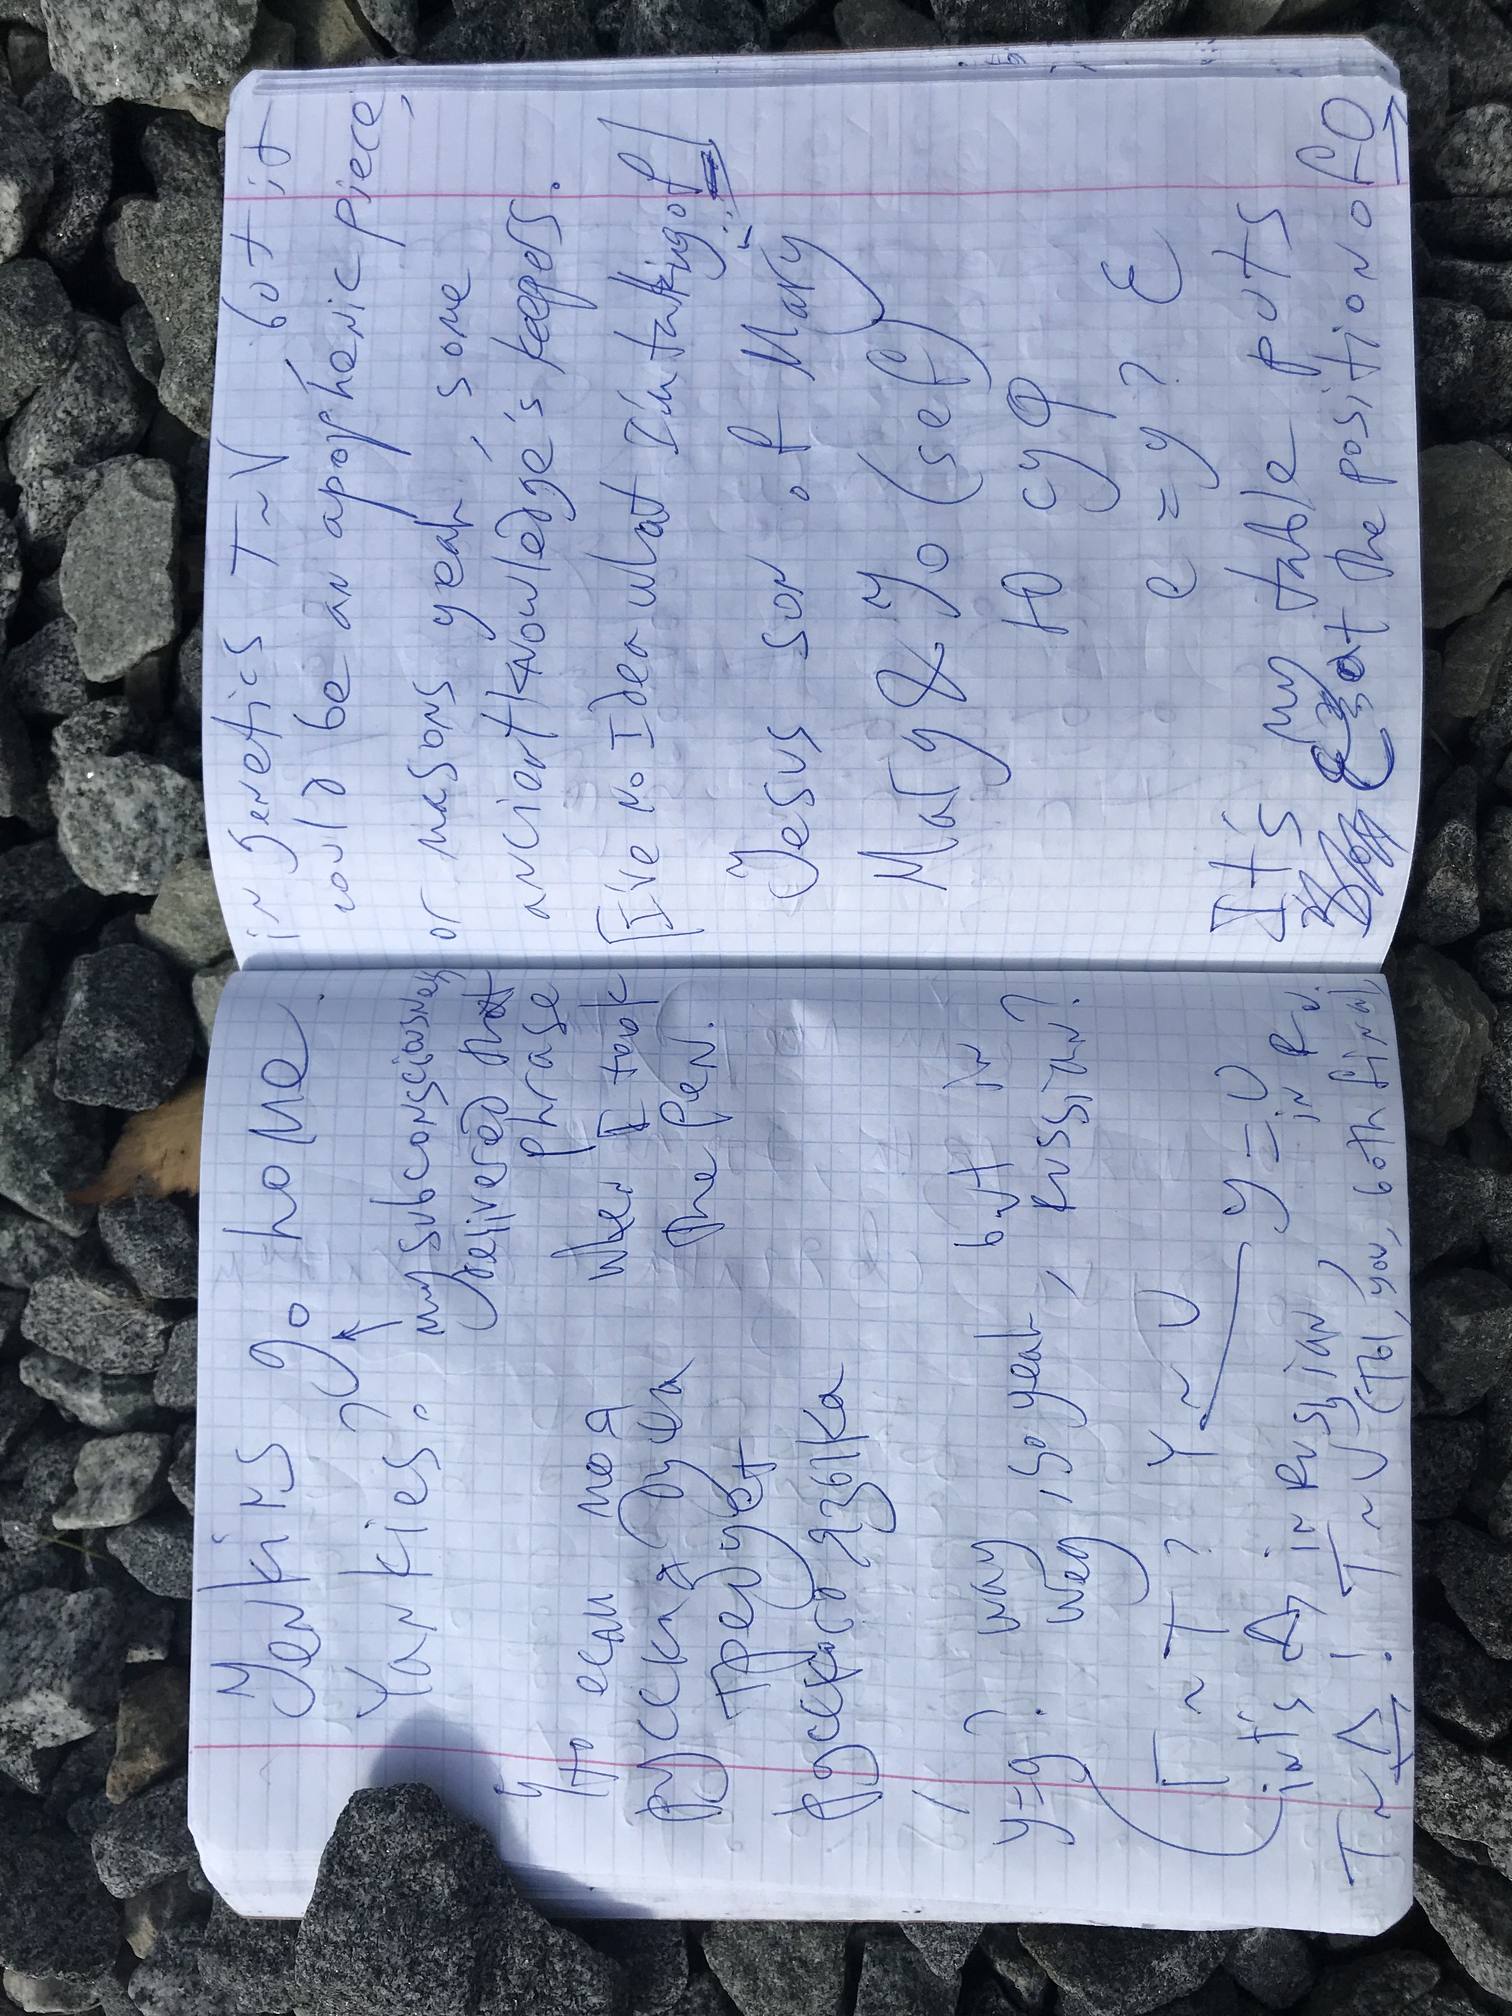 Jenkins go home
Yankies?
my subconsciousness
delivered that
phrase
when I took
the pen.
Что если моя
русская душа
требует
русского языка
y=g? way
weg, so yeah, but in
Russian?
Г ~ T? Y ~ U
int's Δ in Russian y = U in Ru.
T ~ Δ! T ~ U (ты, you, both final)
in genetics T ~ V but it
could be an apophenic piece,
or masons yeah, some
anciant knowledge's keepers.
[I've no Idea what I'm talking of]
Jesus son of Mary
Mary & Yo (sef)
Ю су
e = y? Ɛ
It's my table puts
at the position of O